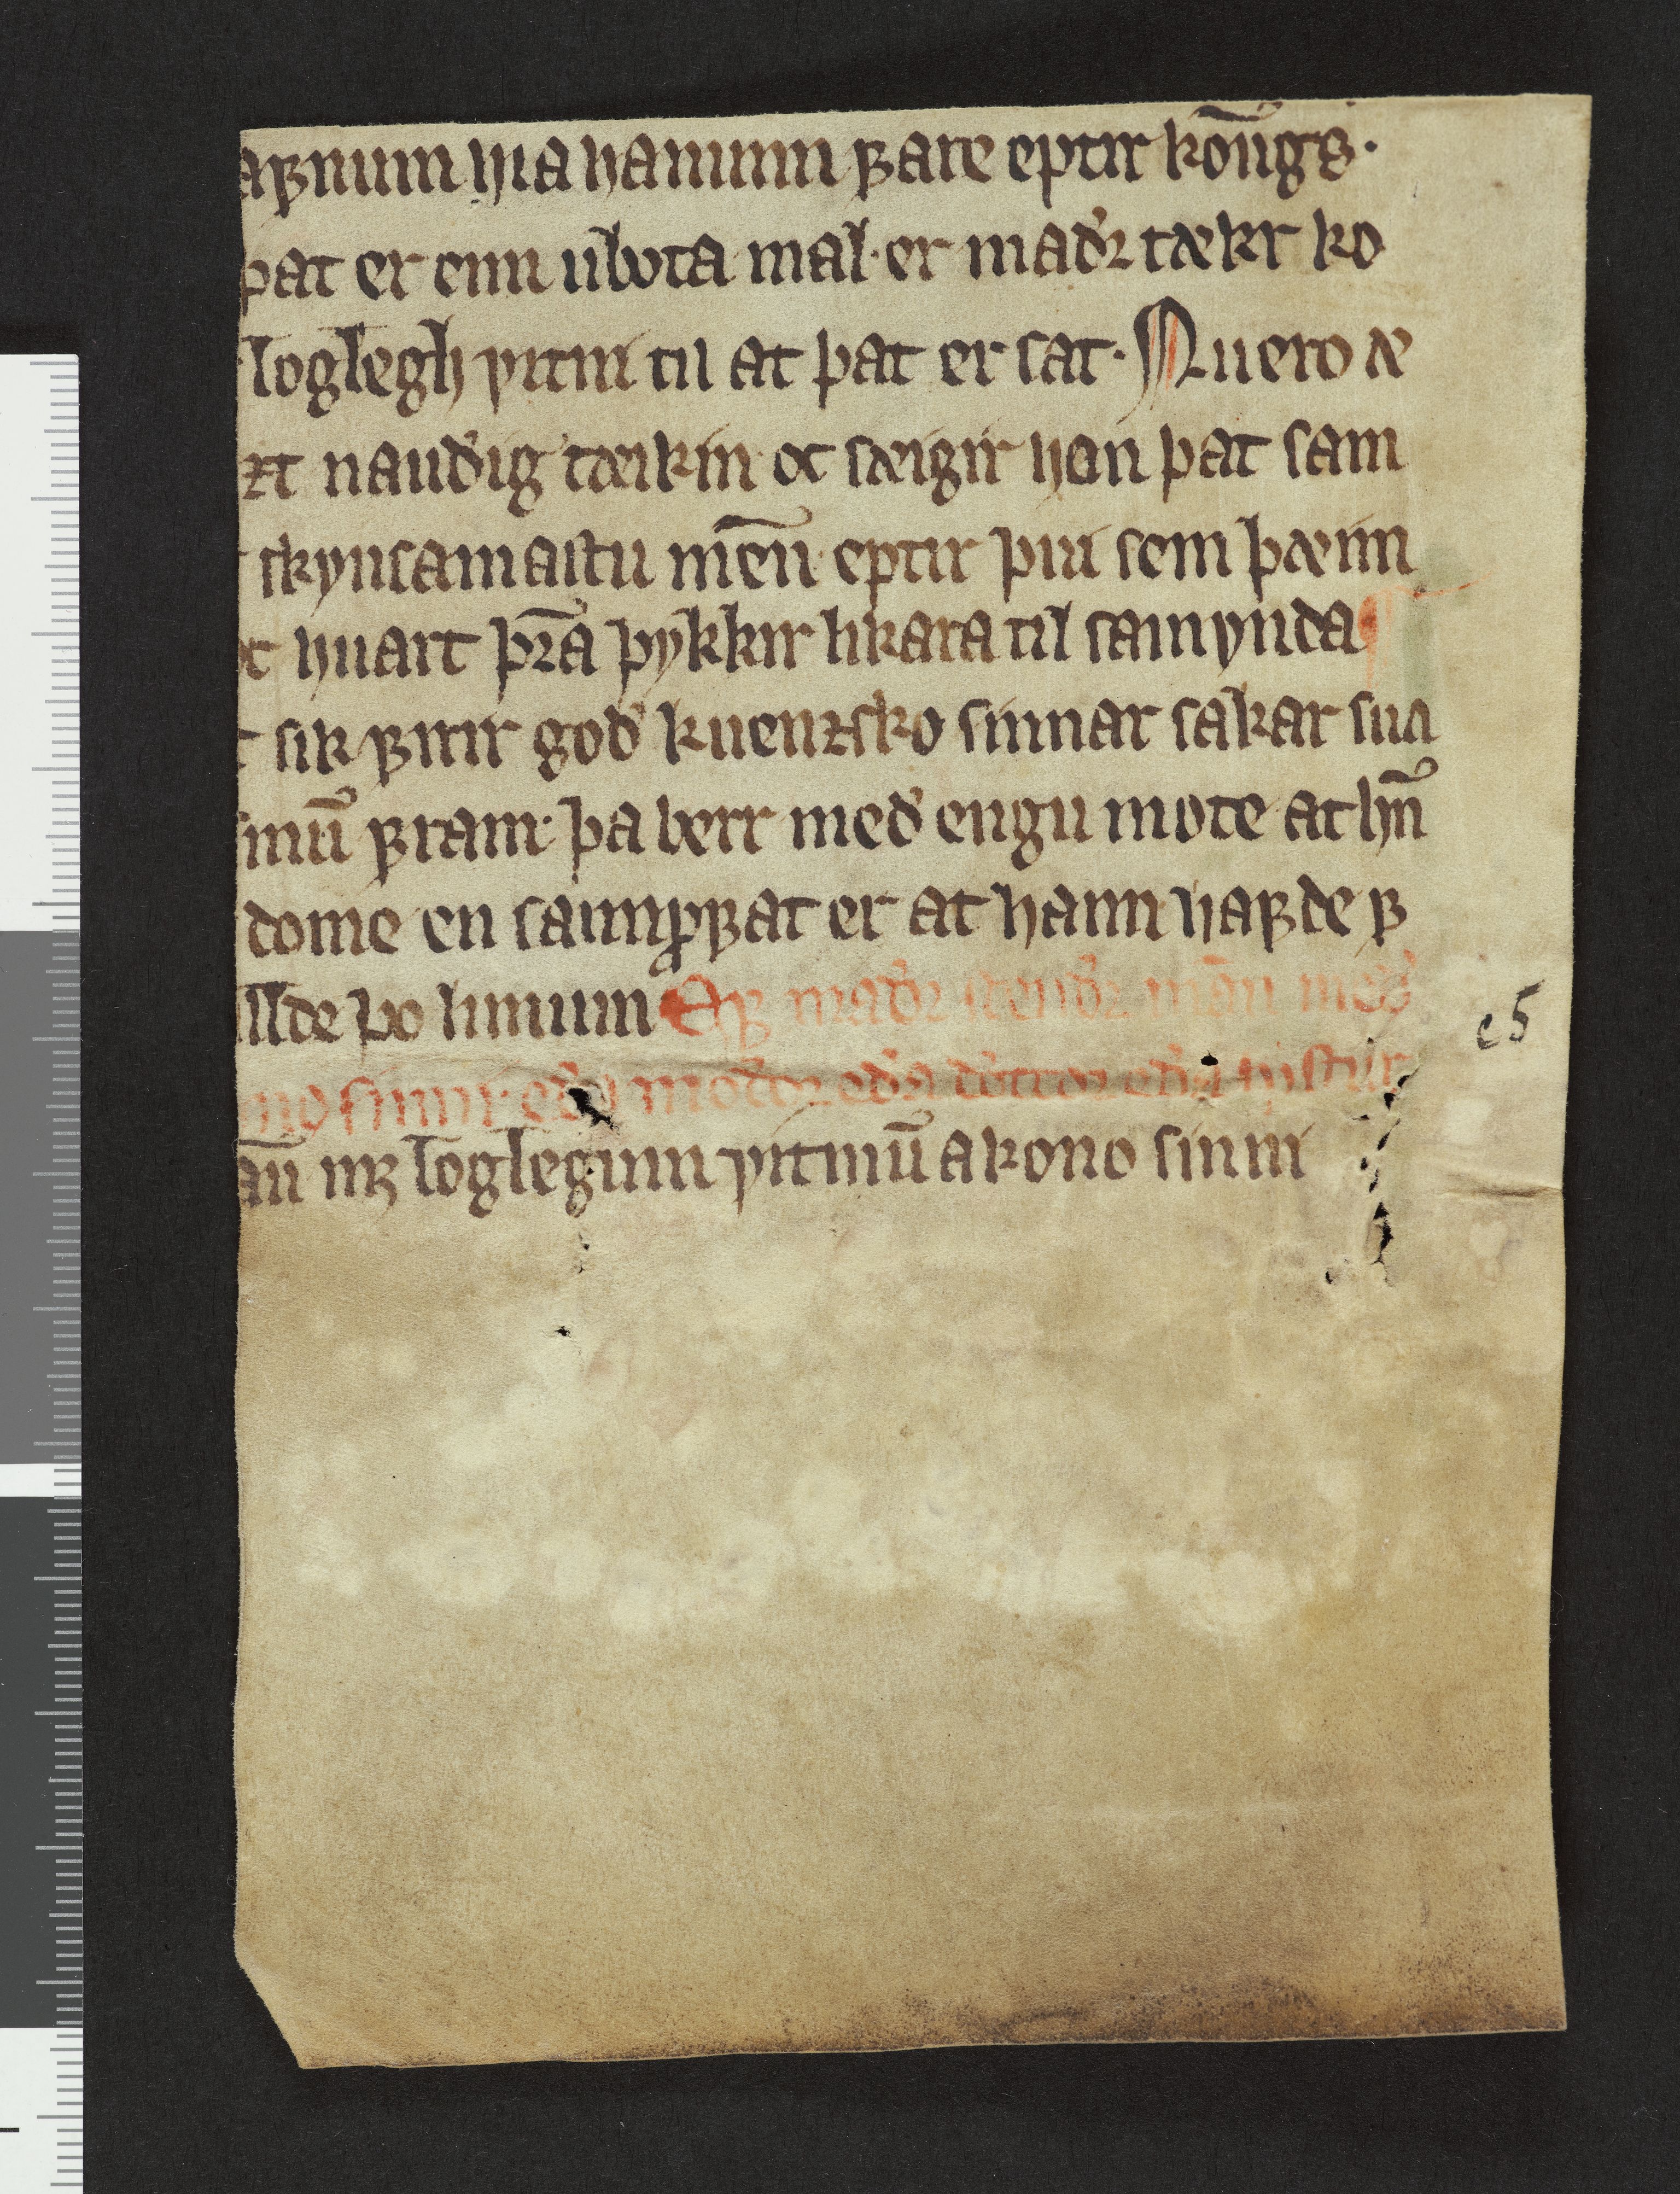 aꝼnum hia hanum ꝼare eptir kōngs·
þat er enn ubota mal· er maðꝛ tækr ko
loglegh vitni til at þat er sat· Nu ero æ
ꝛt nauðig tæikin oc sæigir hon þat sam
skynsamaſtu mēn eptir þui sem þæim
oc huart þꝛa þykkir likara til samynda
sik ꝼirir goð kuenꝛsko sinnar sakar sua
inū ꝼram· þa berr með engu mote at hn̄
dome en saunꝓꝼat er at hann haꝼde ꝼ
llde þo linum Eꝼ maðꝛ stendꝛ mān með
no sinni· eða modoꝛ eða dottoꝛ eða syſtur
an̄ mꝫ loglegum vitnū a kono sinni
e5